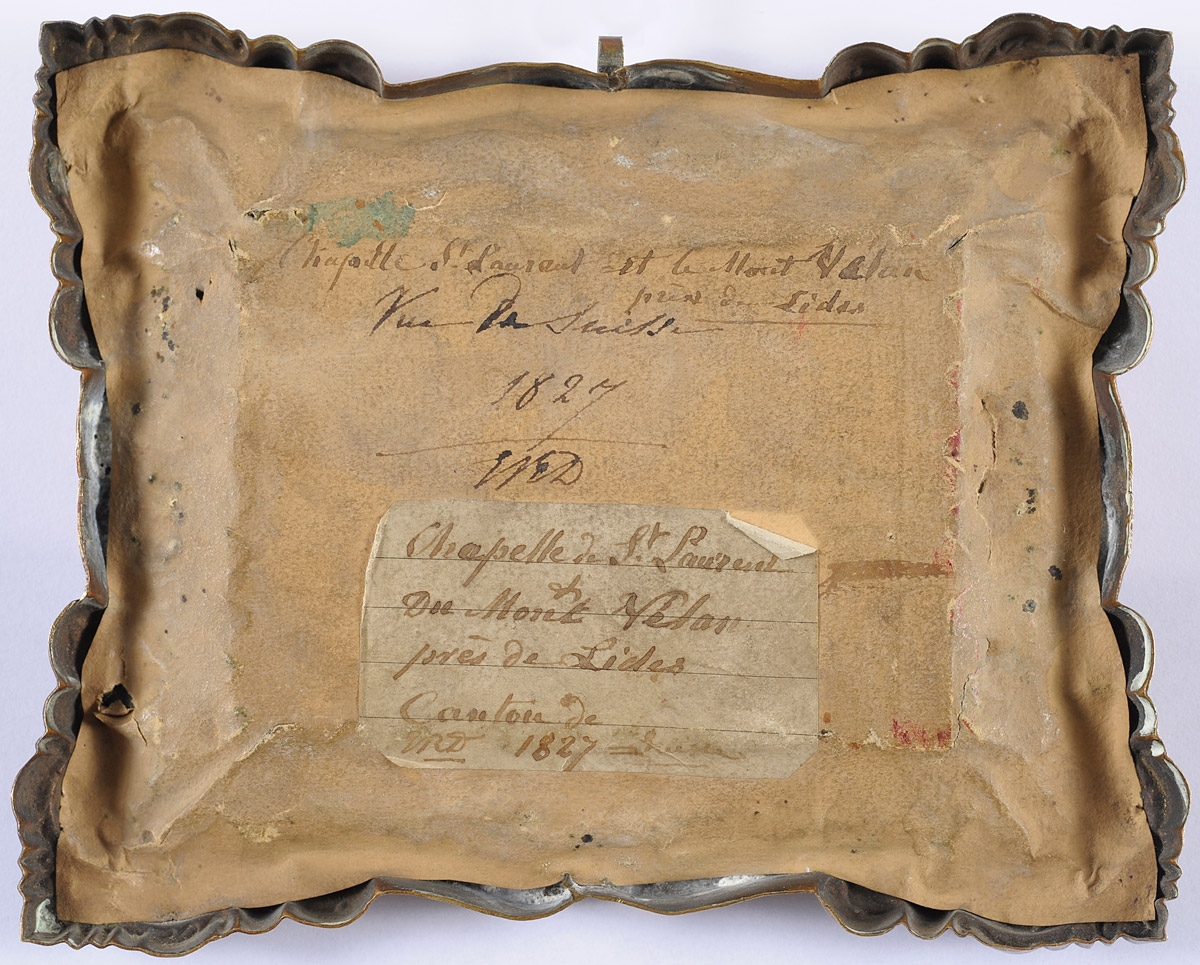 Chapelle St. Laurent et le Mont Vélan
près de Lides
Vue De Suisse
1827
Chapelle de St. Laurent
et
Du Mont Vélan
près de Lides
Canton de
1827